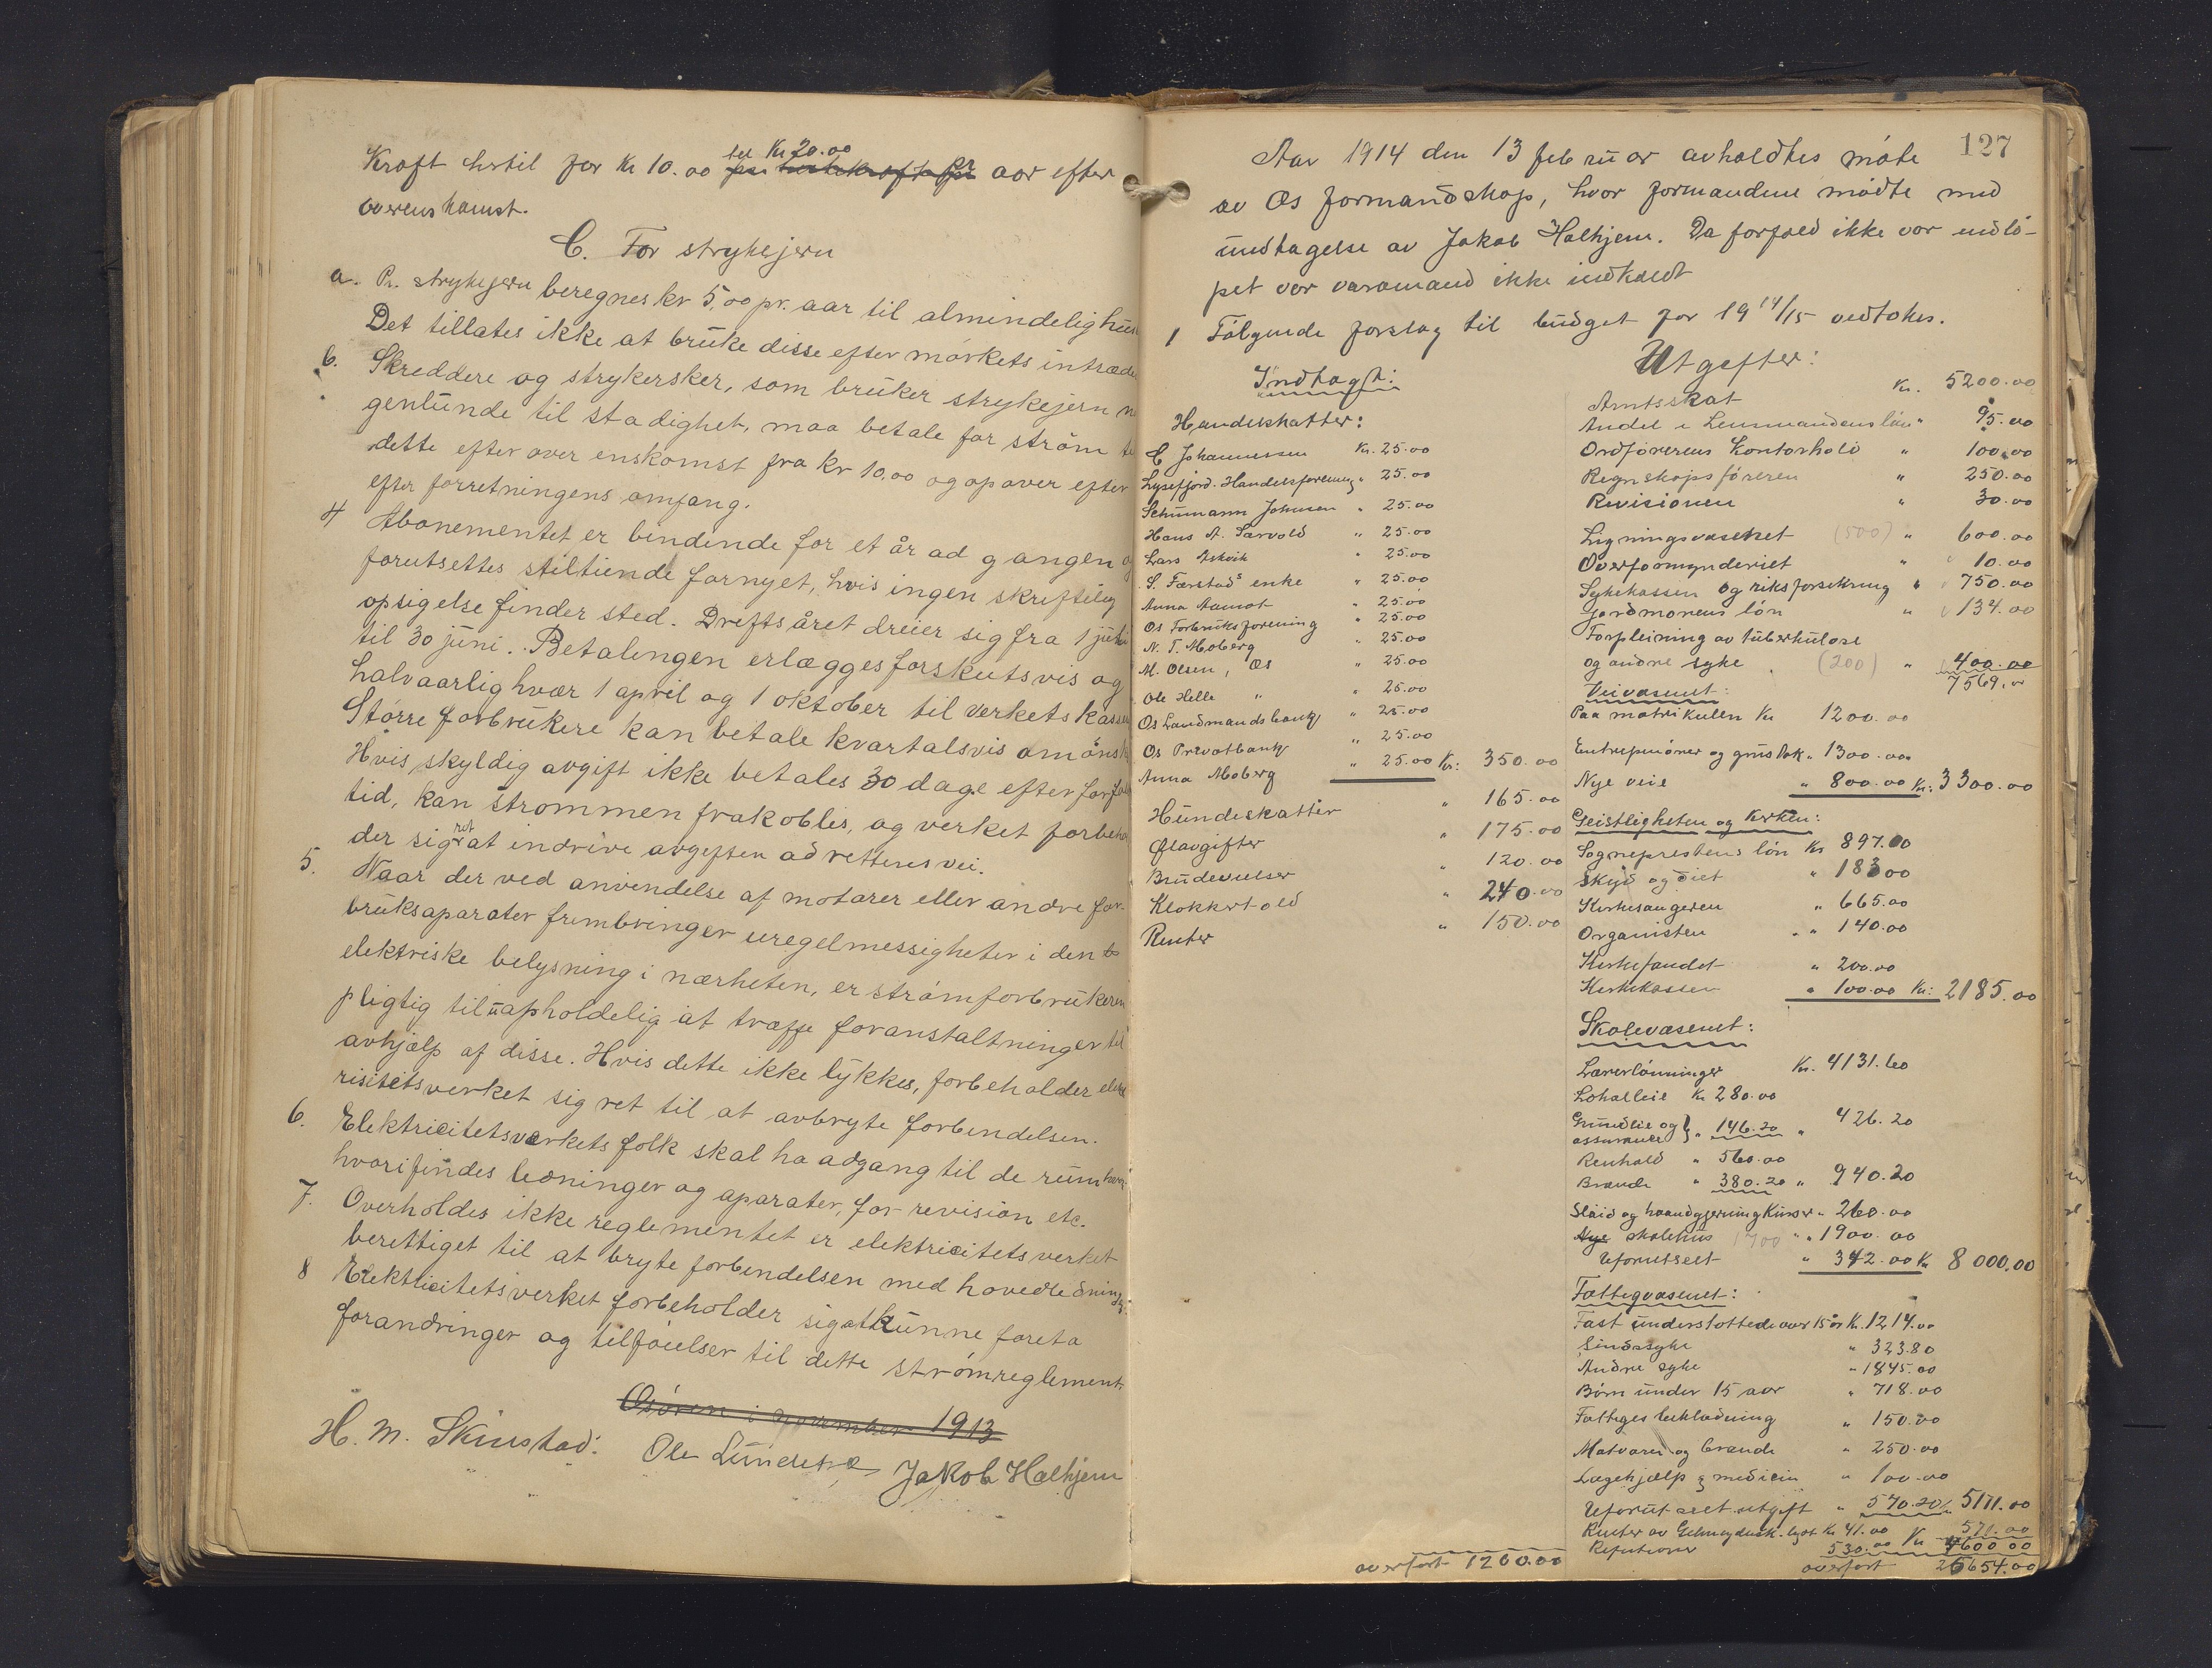 Kraft hertil for Kr 10.00 til Kr 20.00 pr aar efter
overenskomst.
C. For strykejern
a. Pr. strykejern beregnes kr 5,00 pr. aar til almindelig hus
Det tillates ikke at bruke disse efter mørkets intræde
b. Skreddere og strykersker, som bruker strykejern n
genlunde til stadighet, maa betale for strøm
dette efter over enskomst fra kr 10,00 og opover efter
efter forretningens omfang.
4 Abonementet er bindende for et år ad gangen o
forutsettes stiltiende fornyet, hvis ingen skriftlig
opsigelse finder sted. Driftsåret dreier sig fra 1 juli
til 30 juni. Betalingen erlægges forskutsvis og
halvaarlig hvær 1 april og 1 oktober til verkets kasse
Større forbrukere kan betale kvartalsvis om ønsk
Hvis skyldig avgift ikke betales 30 dage efter forfal
tid, kan strømmen frakobles, og verket forbeho
der sig ret at indrive avgiften ad rettens vei.
5. Naar der ved anvendelse af motorer eller andre for-
bruksaparater frembringer uregelmessigheter i den
elektriske belysning i nærheten, er strømforbrukeren
pligtig til uapholdelig at træffe foranstaltninger til
avhjælp af disse. Hvis dette ikke lykkes, forbeholder elekt
risitetsverket sig ret til at avbryte forbindelsen.
6. Elektricitetsverkets folk skal ha adgang til de rum hvor
hvori findes ledninger og aparater, for revision etc.
7. Overholdes ikke reglementet er elektricitetsverket
berettiget til at bryte forbindelsen med hovedledning
8 Elektricitetsverket forbeholder sig at kunne foreta
forandringer og tilføielser til dette strømreglement
Osøren i november 1913
H. M. Skeistad. Ole Lunde Jakob Halhjem
127
Aar 1914 den 13 februar avholdtes møte
av Os formandskap, hvor formændene mødte med
undtagelse av Jakob Halhjem. Da forfald ikke var indlø-
pet var varamand ikke indkaldt
1 Følgende forslag til budget for 1914/15 vedtokes.
Indtægt:
Handelsskatter:
C. Johannessen Kr. 25.00
Lysefjord Handelsforening " 25.00
Schumann Johnsen " 25.00
Hans A. Særvold " 25.00
Lars Askvik " 25.00
S. Færstads enke " 25.00
Anna Aamot " 25.00
Os Forbruksforening " 25.00
N. T. Moberg " 25.00
M. Olsen, Os " 25.00
Ole Helle " " 25.00
Os Landmandsbank " 25.00
Os Privatbank " 25.00
Anna Moberg " 25.00 Kr: 350.00
Hundeskatter " 165.00
Ølavgifter " 175.00
Brudevielser " 120.00
Klokkertold " 240.00
Renter " 150.00
overført 1200.00
Utgifter:
Amtsskat Kr. 5200.00
Andel i Lensmandens løn " 95.00
Ordførerens Kontorhold " 100.00
Regnskapsføreren " 250.00
Revisionen " 30.00
Ligningsvæsenet (500) " 600.00
Overformynderiet " 10.00
Sykekassen og riksforsikring " 750.00
Jordmorens løn " 134.00
Forpleining av tuberkuløse
og andre syke (200) " 400.00
7569.00
Veivæsenet:
Paa matrikulen Kr 1200.00
Entreprenører og grustak " 1300.00
Nye veie " 800.00 Kr: 3300.00
Geistligheten og kirken:
Sogneprestens løn Kr 897.00
Skyds og diet " 183 00
Kirkesangeren " 665.00
Organisten " 140.00
Kirkefondet " 200.00
Kirkekassen " 100.00 Kr: 2185.00
Skolevæsenet:
Lærerlønninger Kr. 4131.60
Lokalleie Kr 280.00
Grundleie og
assurance } " 146.20 " 426.20
Renhold " 560.00
Brænde " 380.20 " 940.20
Sløid og haandgjerning Kurser " 260.00
Nye skolehus 1700 " 1900.00
Uforutseet " 342.00 Kr 8000,00
Fattigvæsenet:
Fast understøttede over 15 år Kr. 1214.00
Sindssyke " 323.80
Andre syke " 1845.00
Børn under 15 aar " 718.00
Fattiges beklædning " 150.00
Matvarer og brænde " 250.00
Lægehjælp & medicin " 100.00
Uforutseet utgift " 570.20 5171.00
Renter av Kr 41.00
Refusioner 530.00 Kr 571.00
4600 00
overført 25654.00